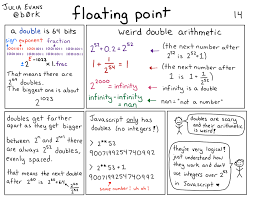 JULIA EVANS
@b0rk
floating point
14
a double is 64 bits
sign exponent fraction
± 2^(E-1023) × 1.frac
That means there are
2^64 doubles.
The biggest one is about
2^1023
weird double arithmetic
2^53 + 0.2 = 2^53
(the next number after
2^53 is 2^53 + 2)
1 + 1/2^54 = 1
(the next number after
2^2000 = infinity
infinity is a double
infinity - infinity = nan
nan = "not a number"
doubles get farther
apart as they get bigger
between 2^n and 2^(n+1) there
are always 2^52 doubles,
evenly spaced.
that means the next double
after 2^60 is 2^60 +
Javascript only has
doubles (no integers!)
> 2**53
9007199254740992
> 2**53 + 1
9007199254740992
same number! uh oh!
doubles are scary
and their arithmetic
is weird!
they're very logical!
just understand how
they work and don't
use integers over 2^53
in Javascript ♥